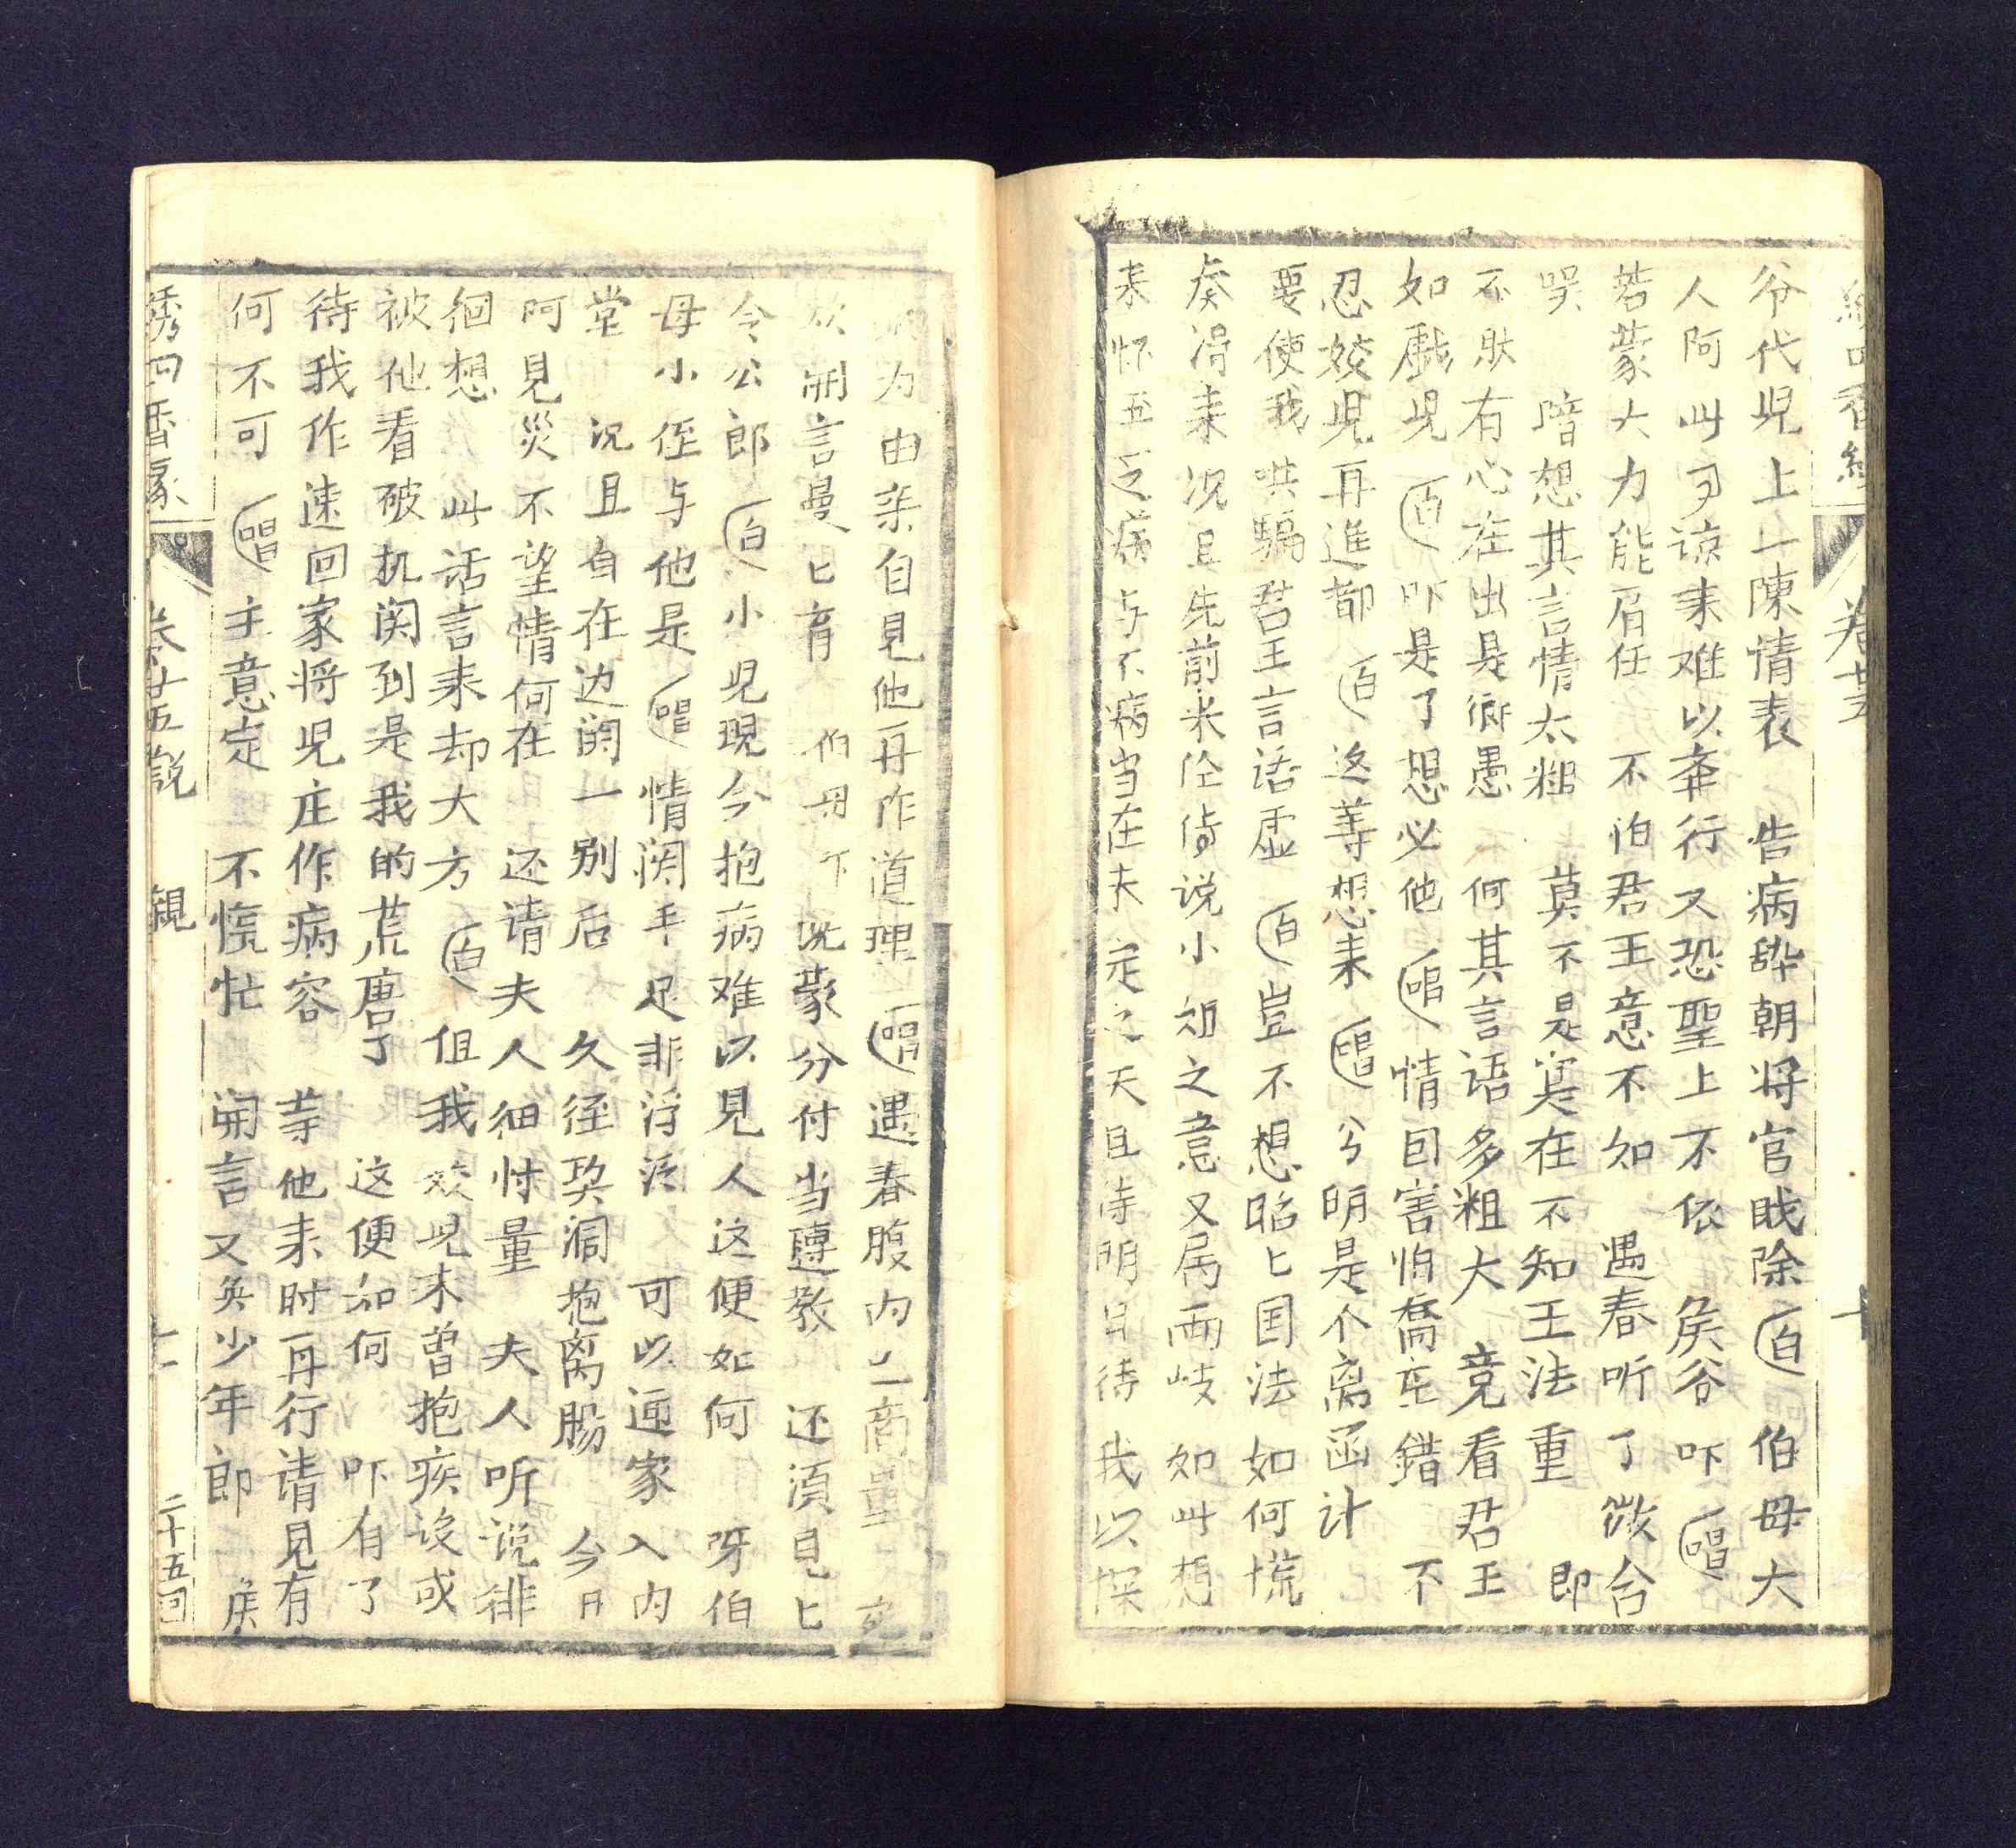 卷廿五
爷代児上一陳情表 告病辞朝将官戝除 白 伯母大
人阿此 谅来难以奔行又恐聖上不依 矦爷 吓 唱
若蒙大力能肩任 不怕君王意不如 遇春听了微含
哭 暗想其言情太粗 莫不是寞在不知王法重 即
不肰有心在出是衙愚 何其言语多粗大 竟看君王
如戲児 白 吓是了想必他 唱 情囙害怕喬庄錯 不
忍姣児再進都 白 这等想来 唱 兮明是个离函计
要使我哄骗君王言语虚 白 岂不想昭匕国法如何慌
奏淂来况且先前米 说小姐之意又属両岐 如此想
来怀五之病与不病当在夫 定之天且待明日待我以探
为由亲自見他再作道理 唱 遇春腹内上商量
開言曼匕育 伯母下 况蒙分付当遵教 还湏見匕
令公郎 白 小児現今抱病难以見人这便如何 呀伯
母小侄与他是 唱 情関手足非浮泛 可以通家入内
堂 况且自在边関一别后 久径契濶抱离肠 今日
阿見災不望情何在 还请夫人细忖量 夫人听说徘
徊想 此话言来却大方 白 但我姣児未曾抱疾设或
被他看破机関到是我的荒唐了 这便如何 吓有了
待我作速回家将児庄作病容 等他来时再行请見有
何不可 唱 主意定 不慌忙 開言又奂少年郎 矦
绣四香縁 卷廿五説 観 十一 二十五回